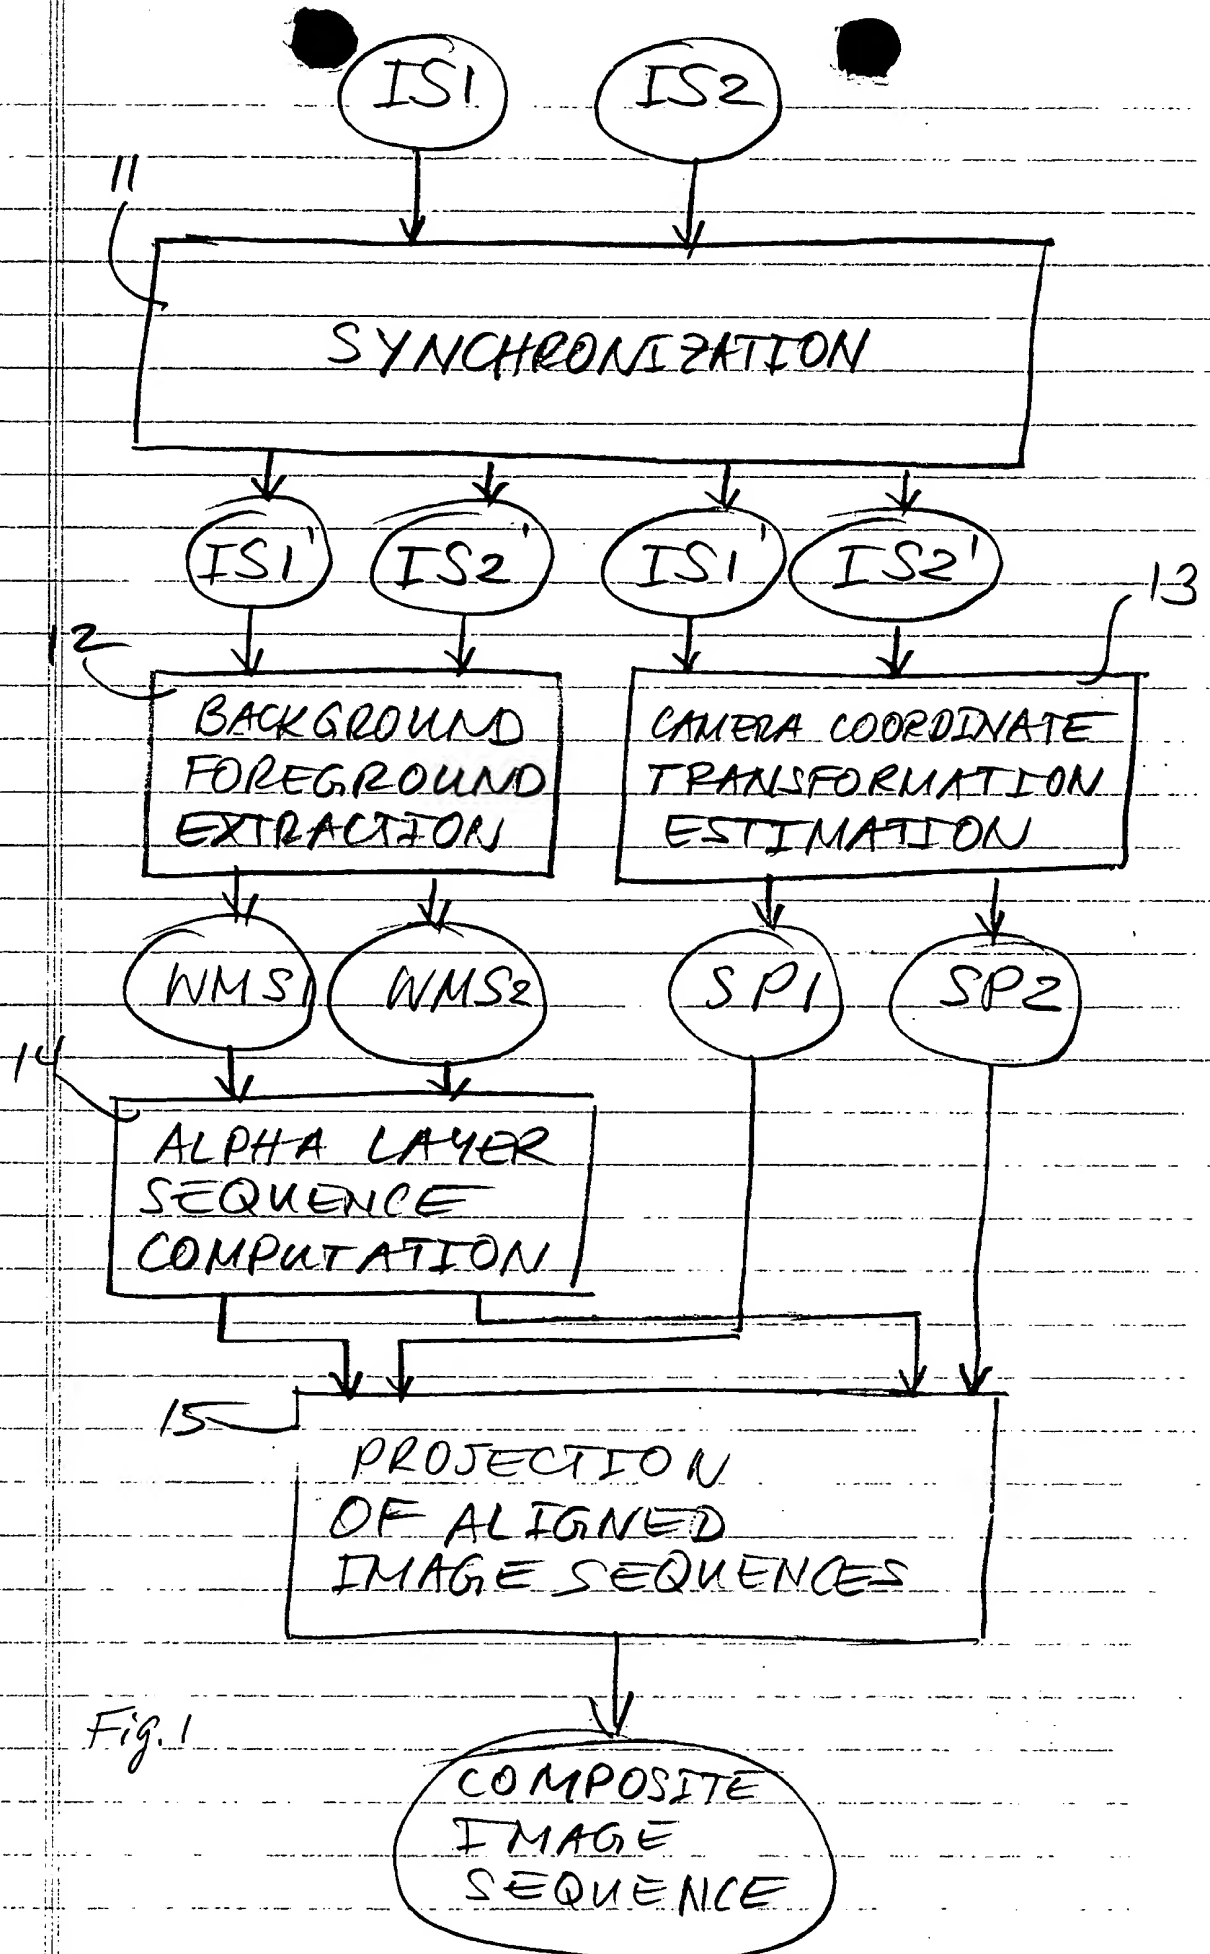 IS1 IS2
11
SYNCHRONIZATION
IS1' IS2' IS1' IS2'
13
12
BACKGROUND
FOREGROUND
EXTRACTION
CAMERA COORDINATE
TRANSFORMATION
ESTIMATION
WMS1 WMS2 SP1 SP2
14
ALPHA LAYER
SEQUENCE
COMPUTATION
15
PROJECTION
OF ALIGNED
IMAGE SEQUENCES
Fig. 1
COMPOSITE
IMAGE
SEQUENCE